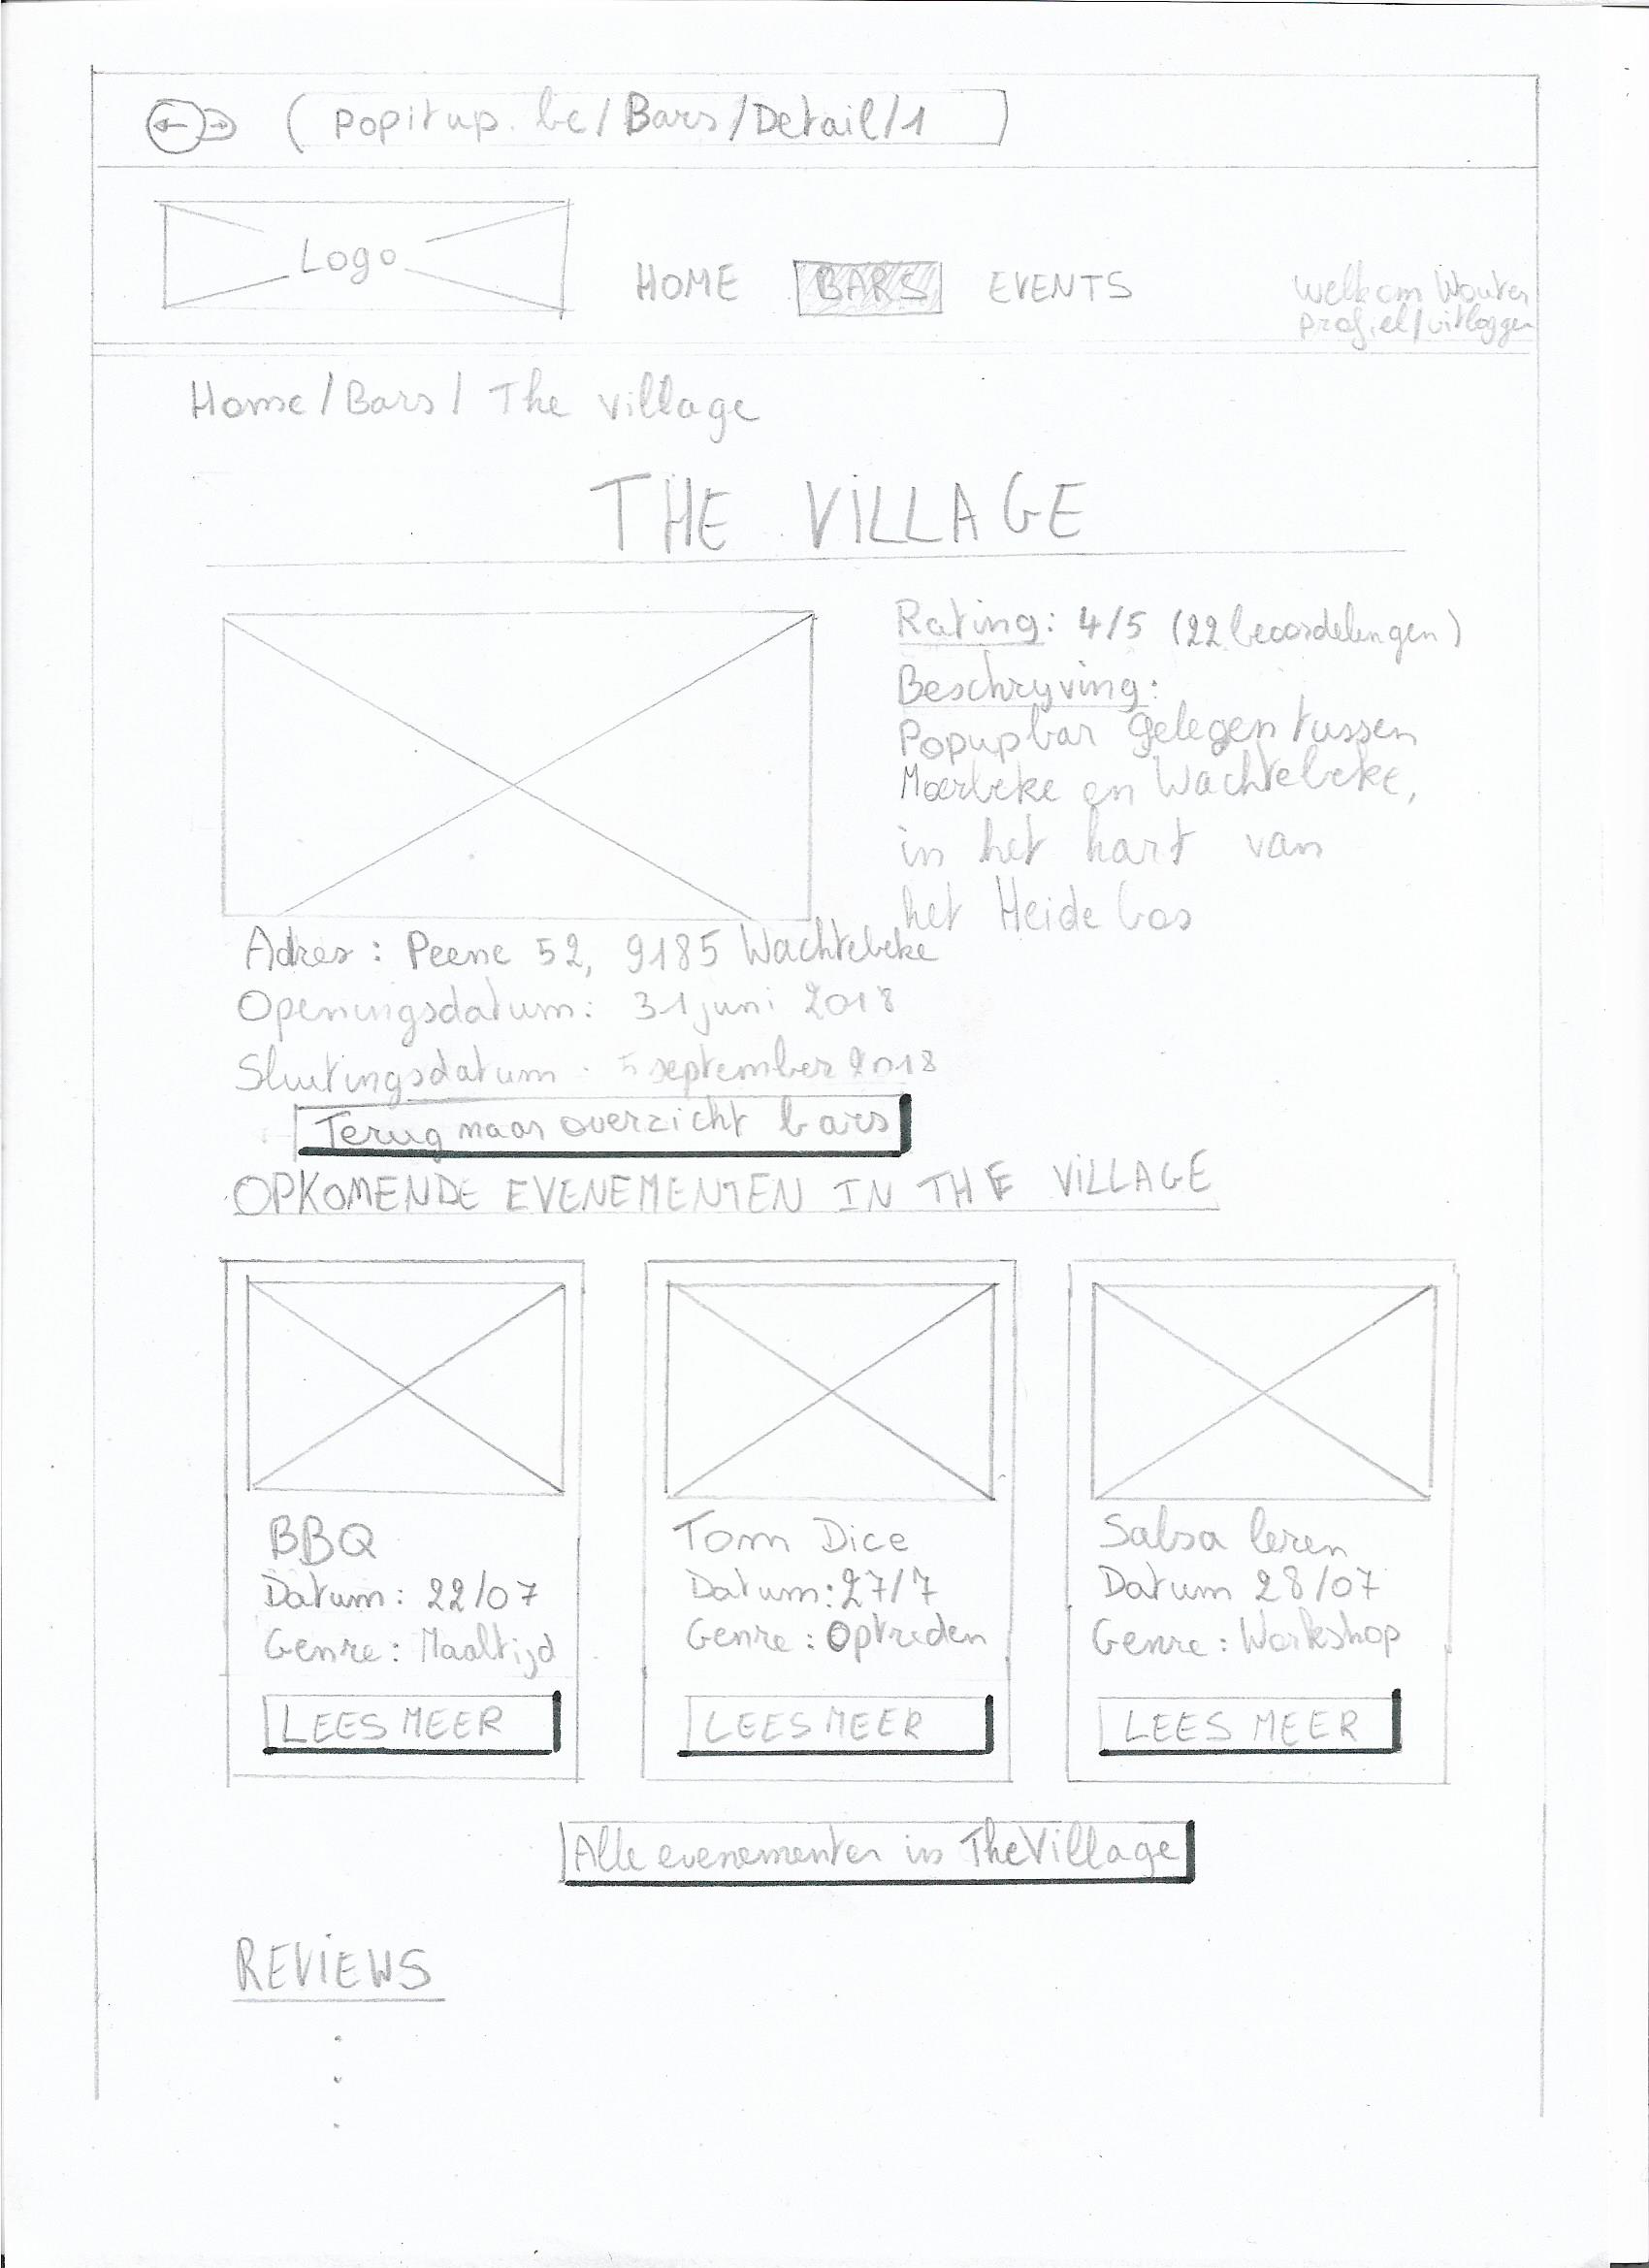 popitup.be/Bars/Detail/1
Logo
HOME BARS EVENTS
welkom Wouter
profiel/uitloggen
Home/Bars/The village
THE VILLAGE
Rating: 4/5 (22 beoordelingen)
Beschryving:
Popupbar gelegen tussen
Moerbeke en Wachtebeke,
in het hart van
het Heidebos
Adres: Peene 52, 9185 Wachtebeke
Openingsdatum: 31 juni 2018
Sluitingsdatum: 5 september 2018
Terug naar overzicht bars
OPKOMENDE EVENEMENTEN IN THE VILLAGE
BBQ
Datum: 22/07
Genre: Maaltijd
LEES MEER
Tom Dice
Datum: 27/7
Genre: Optreden
LEES MEER
Salsa leren
Datum 28/07
Genre: Workshop
LEES MEER
Alle evenementen in The Village
REVIEWS